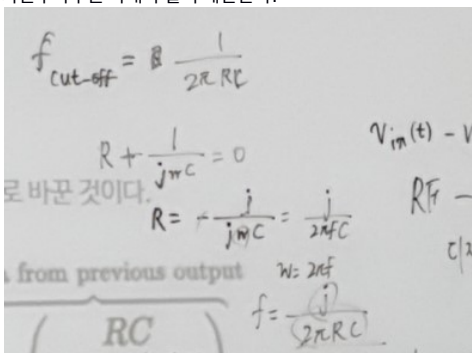 f cut-off = 1 / 2π RC
R + 1 / jwC = 0
V in (t) -
로 바꾼 것이다.
R = - j / jwC = j / 2πfC
from previous output
w = 2πf
f = j / 2πRC
RC